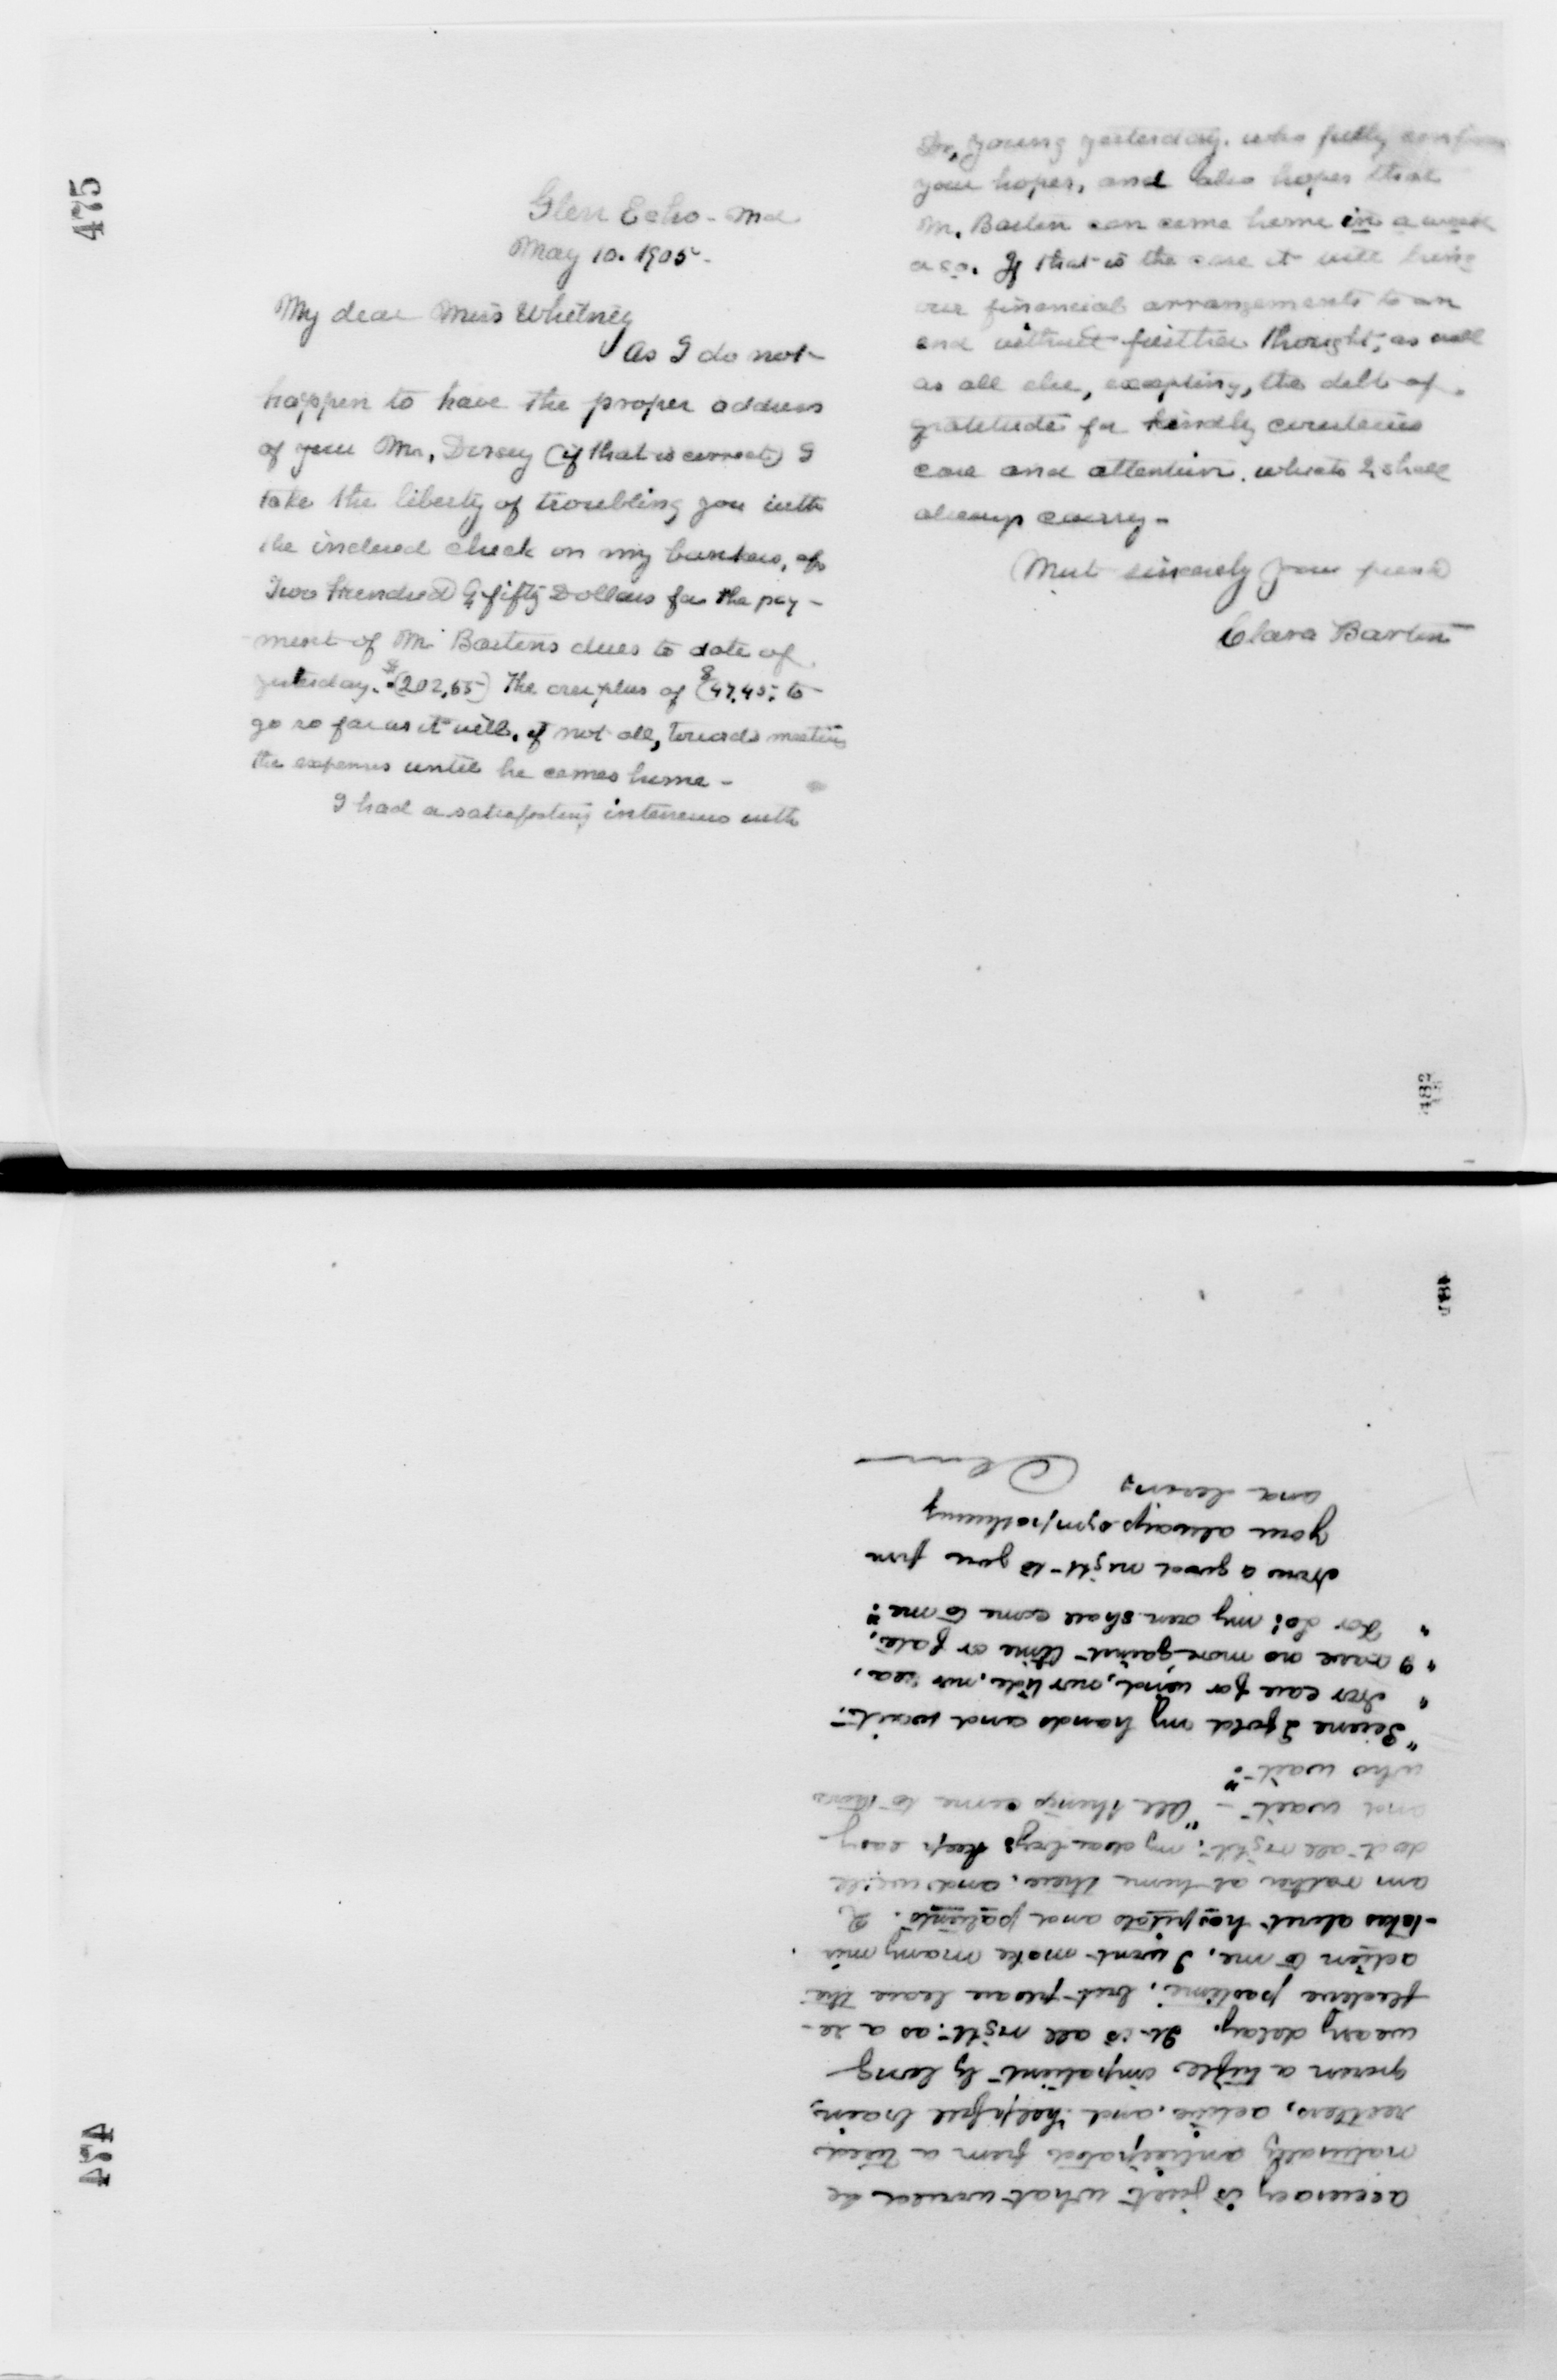 475
Glen Echo - Md
May 10. 1905 -
My dear Miss Whitney
As I do not
happen to have the proper address
of your Mr. Dorsey (if that is correct) I
take the liberty of troubling you with
the inclosed check on my bankers, of
Two Hundred & fifty Dollars for the pay -
ment of Mr Bartons dues to date of
yesterday. $(202,55) The overplus of $(47,45; to
go so far as it will, if not all, towards meeting
the expenses until he comes home -
I had a satisfactory interview with
Dr, Young yesterday. who fully confirms
your hopes, and also hopes that
Mr. Barton can come home in a week
or so. If that is the case it will bring
our financial arrangements to an
end without further thought, as well
as all else, excepting, the debt of
gratitude for kindly courteous
care and attention. which I shall
always carry -
Most sincerely your friend
Clara Barton
482
481
accuracy is just what would be
naturally anticipated from a tired
restless, active, and helpful brain,
grown a trifle impatient by long
weary delay. It is all right: as a re-
flective pastime, but please leave the
action to me, I wont make many mis
-takes about hospitals and patients. I
am rather at home there, and will
do it all right; my dear boys keep easy
and wait - "All things come to those
who wait".
"Serene I fold my hands and wait.
" Nor care for wind, nor tide, nor sea,
" I rave no more gainst time or fate,
" For Lo! my own shall come to me".
Now a good night to you from
your always sympathizing
and loving
Clara
474